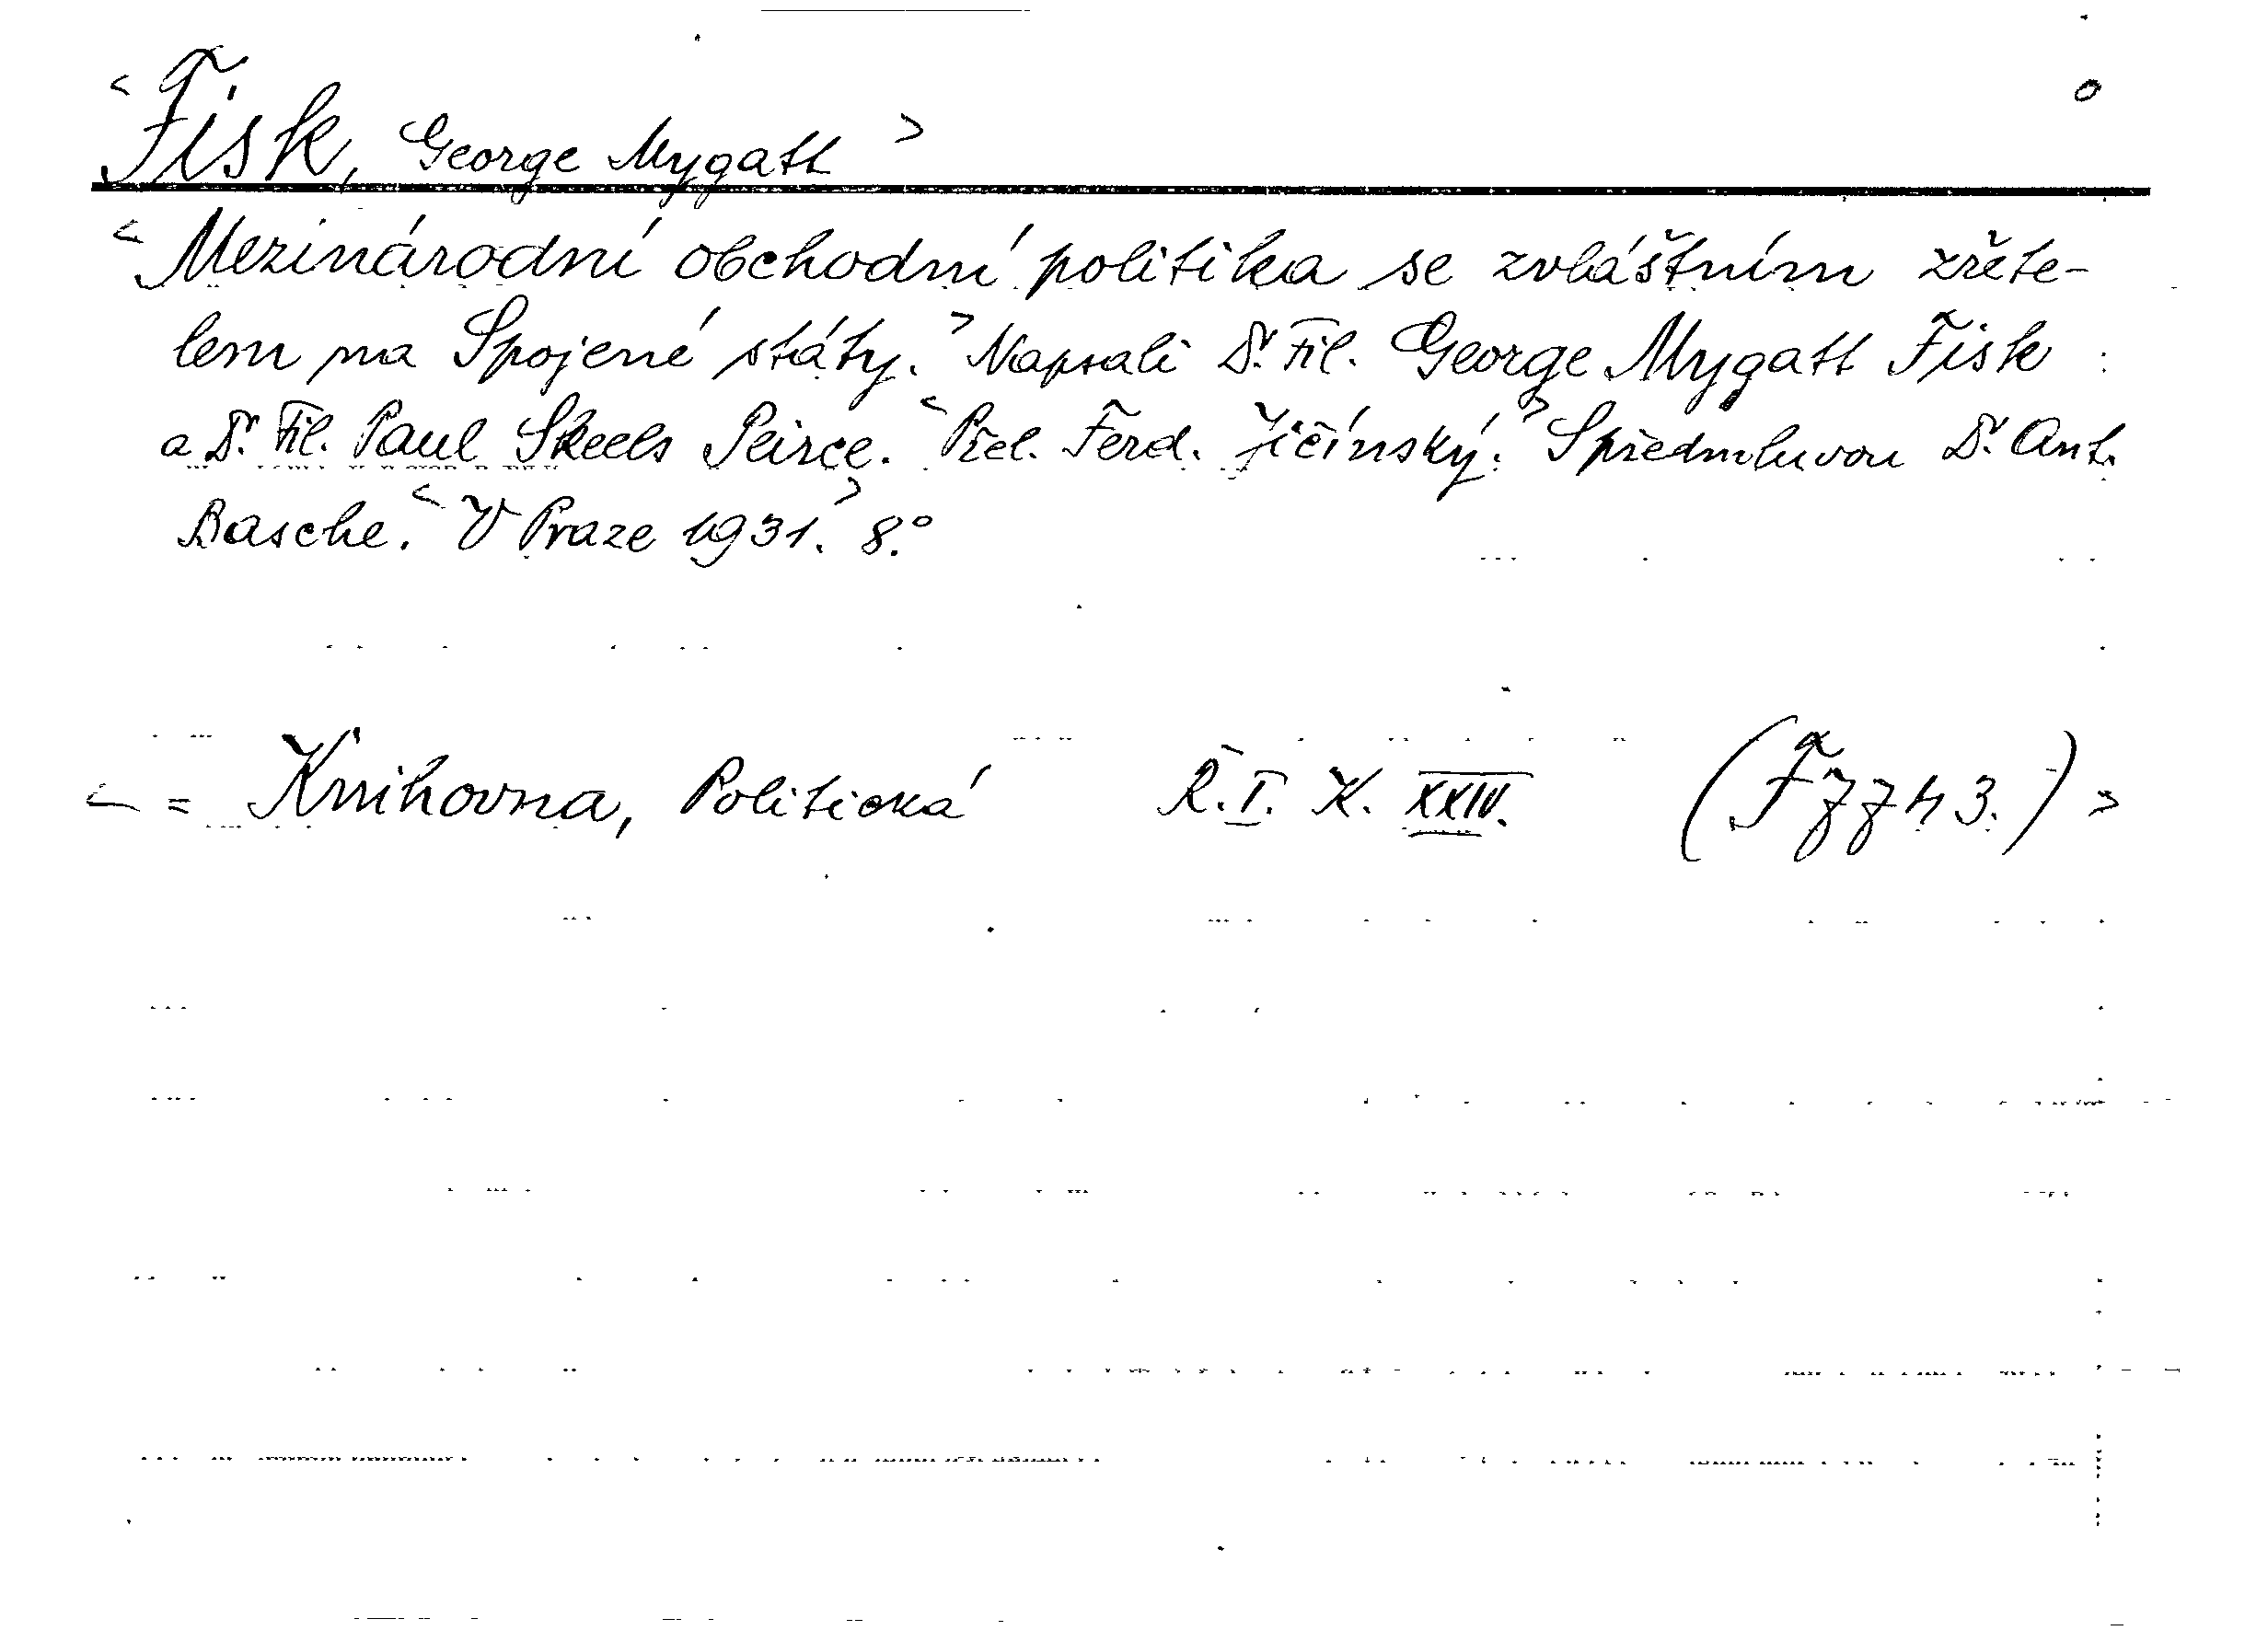 < Fisk, George Mygatt >
< Mezinárodní obchodní politika se zvláštním zřete-
lem na Spojené státy. > Napsali Dr. Fil. George Mygatt Fisk
a Dr. Fil. Paul Skeels Peirce. < Přel. Ferd. Jičínský. > S předmluvou Dr. Ant.
Basche. < V Praze 1931. > 8.°
< = Knihovna, Politická R. I. K. XXIV. (F 7743.) >